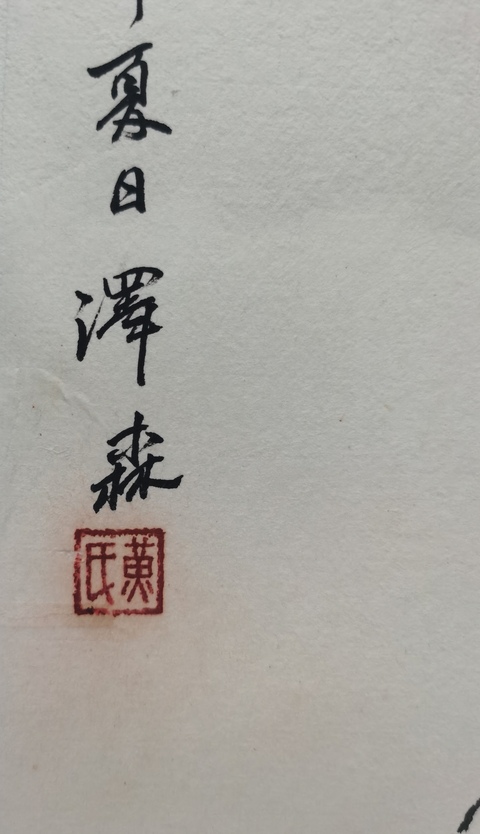 夏日澤森
黄氏